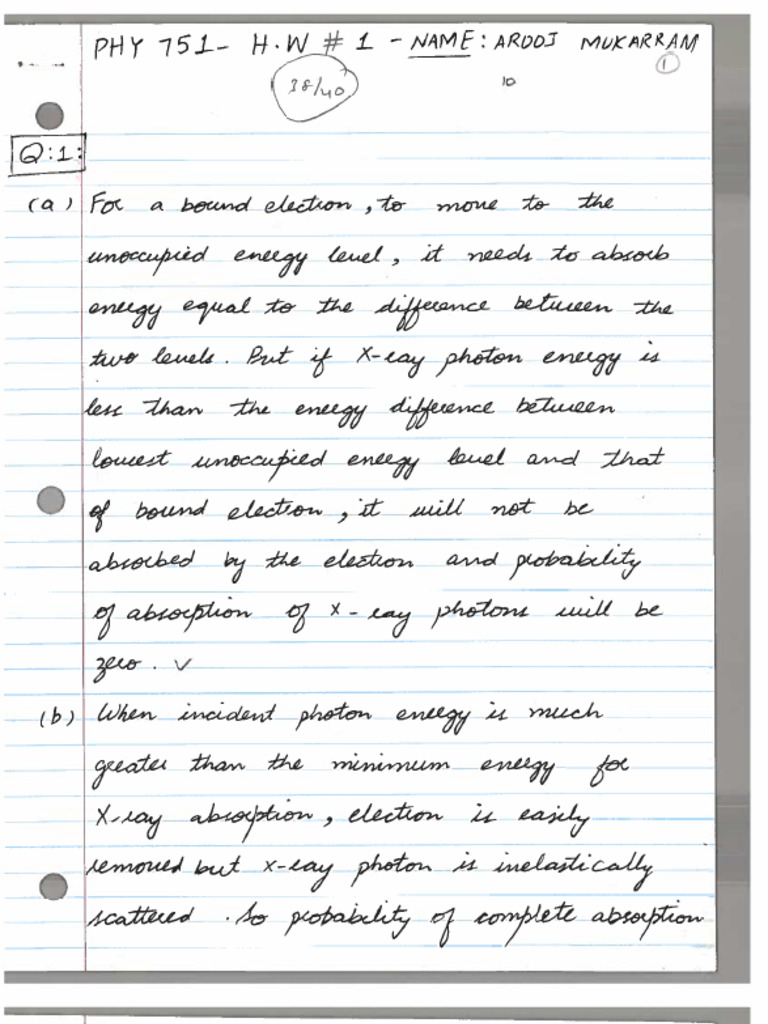 PHY 751- H.W # 1 - NAME: AROOJ MUKARRAM
1
38/40
10
Q:1:
(a) For a bound electron, to move to the
unoccupied energy level, it needs to absorb
energy equal to the difference between the
two levels. But if X-ray photon energy is
less than the energy difference between
lowest unoccupied energy level and that
of bound electron, it will not be
absorbed by the electron and probability
of absorption of X-ray photons will be
zero. ✓
(b) When incident photon energy is much
greater than the minimum energy for
X-ray absorption, electron is easily
removed but x-ray photon is inelastically
scattered. So probability of complete absorption